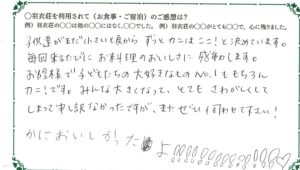 ○羽衣荘を利用されて（お食事・ご宿泊）のご感想は？
例）羽衣荘の○○は他の○○にはなく、○○でした。 例）羽衣荘の○○がとても○○で、心に残りました。
子供達がまだ小さい頃からずっとカニはここ！と決めています。
毎回来るたびにお料理のおいしさに感動します。
お陰様で子どもたちの大好きなものNo.1ももちろん
カニ！です。みんな大きくなって、とても さわがしくして
しまって申し訳なかったですが、またぜひ伺わせて下さい！
かにおいしかった よ!!!!!!!!!!♡